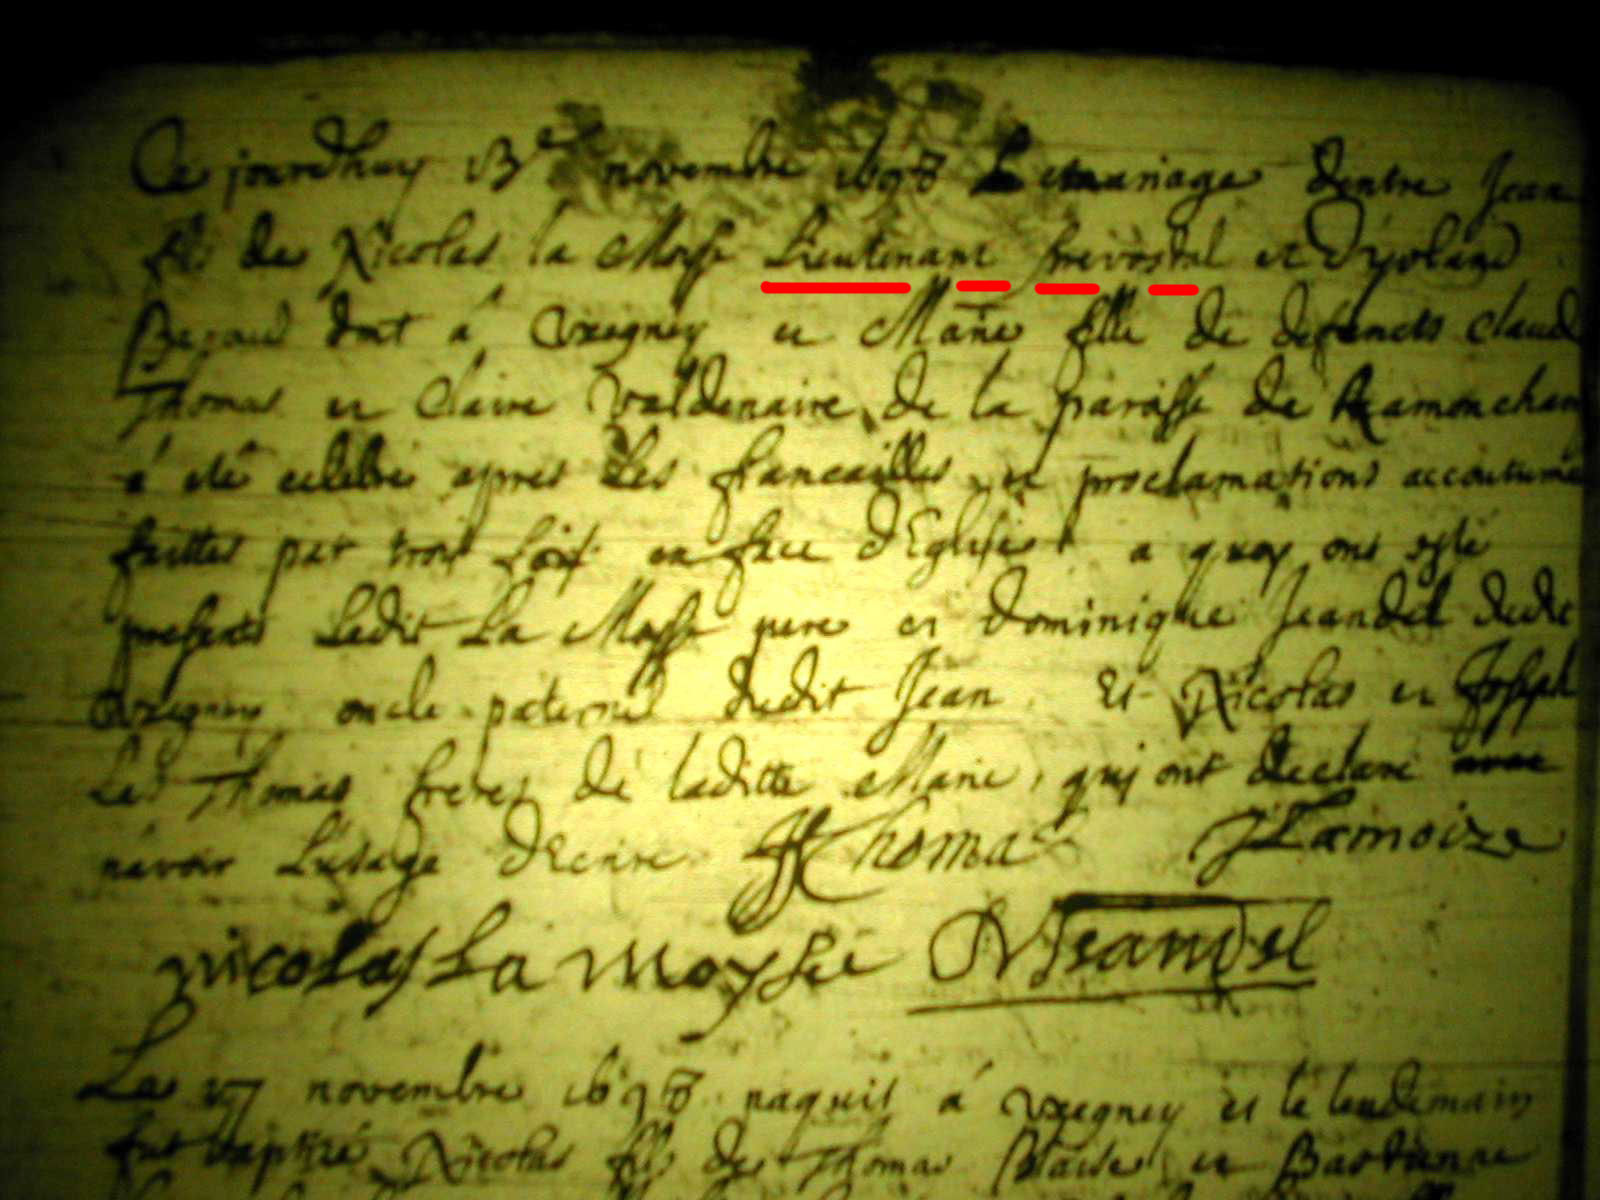 Ce jourdhuy 13e novembre 1698 Le mariage dentre Jean
fils de Nicolas la Moysse Lieutenant prevostal et Dyolande
dont á Uxegney et Marie fille de defuncts claude
Thomas et Claire Valdenaire de la paroisse de Ramonchamp
á eté celebré apres Les fiancailles et proclamations accoutumé
faittes par trois fois en face dEglise a quoy ont esté
presents Ledit La Moysse pere et dominique Jeandel dudit
Uxegney oncle paternel dudit Jean Et Nicolas et Joseph
Les Thomas freres de laditte Marie, quj ont declaré
navoir Lusage dEcrire Thomas JLamoize
nicolas La moysse DJeandel
Le 17 novembre 1698 naquit á Uxegney et le lendemain
fut baptizé Nicolas fils de Thomas Blaise et Bastienne